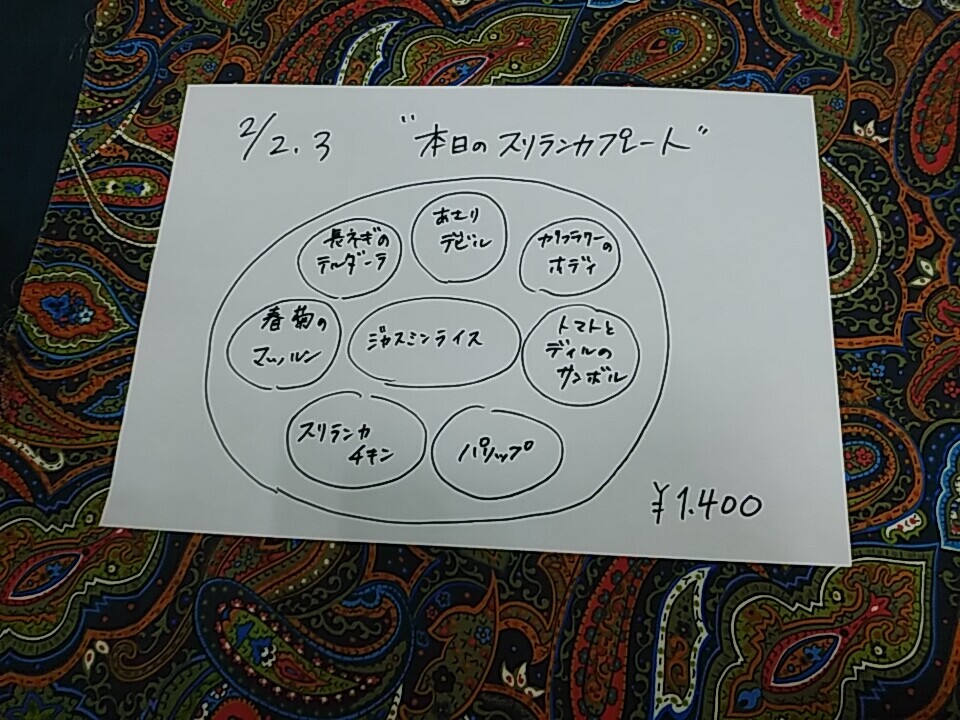 2/2.3
"本日のスリランカプレート"
あさり
デビル
長ネギの
テルダーラ
カリフラワーの
ホディ
春菊の
マッルン
ジャスミンライス
トマトと
ディルの
サンボル
スリランカ
チキン
パリップ
¥1.400